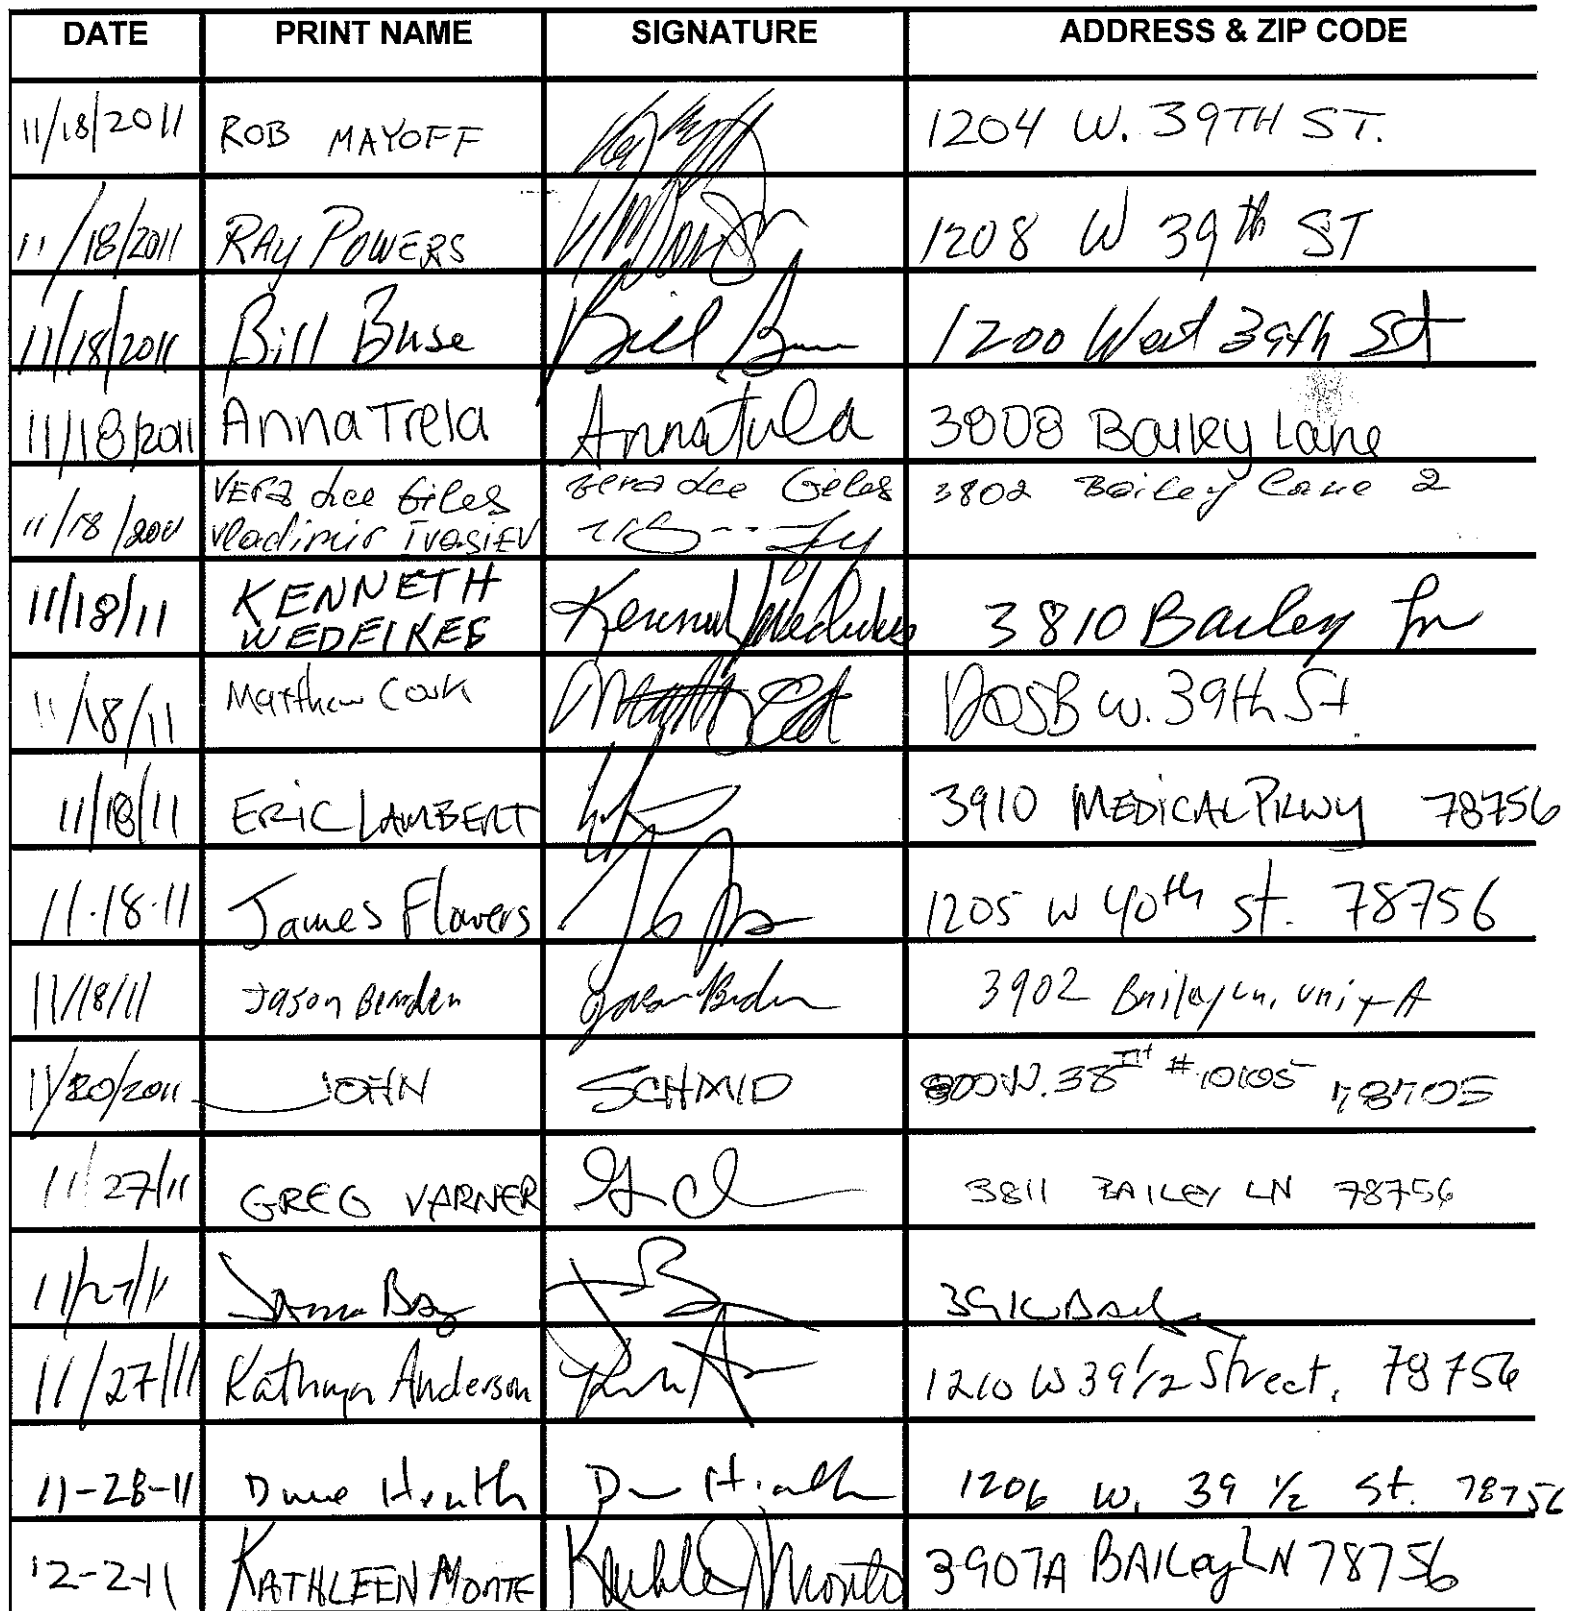 DATE PRINT NAME SIGNATURE ADDRESS & ZIP CODE
11/18/2011 ROB MAYOFF 1204 W. 39TH ST.
11/18/2011 RAY POWERS 1208 W 39th ST
11/18/2011 Bill Buse Bill 1200 West 39th St
11/18/2011 Anna Trela Anna Trela 3808 Bailey Lane
VERA Lee Giles Vera Lee Giles 3802 Bailey Lane 2
11/18/2011 Vladimir
11/18/11 KENNETH Kenneth 3810 Bailey Ln
WEDEIKES
11/18/11 Matthew W. 39th St.
11/18/11 ERIC LAMBERT 3910 MEDICAL PKWY 78756
11.18.11 James Flowers 1205 W 40th St. 78756
11/18/11 Jason Bearden 3902 Bailey Ln, Unit A
11/20/2011 JOHN SCHMID 800 W. 38TH #10105 78705
11/27/11 GREG VARNER 3811 BAILEY LN 78756
11/27/11
11/27/11 Kathryn Anderson 1210 W 39 1/2 Street, 78756
11-28-11 Heath 1206 W. 39 1/2 St. 78756
12-2-11 KATHLEEN MONTE Kathleen Monte 3907A BAILEY LN 78756